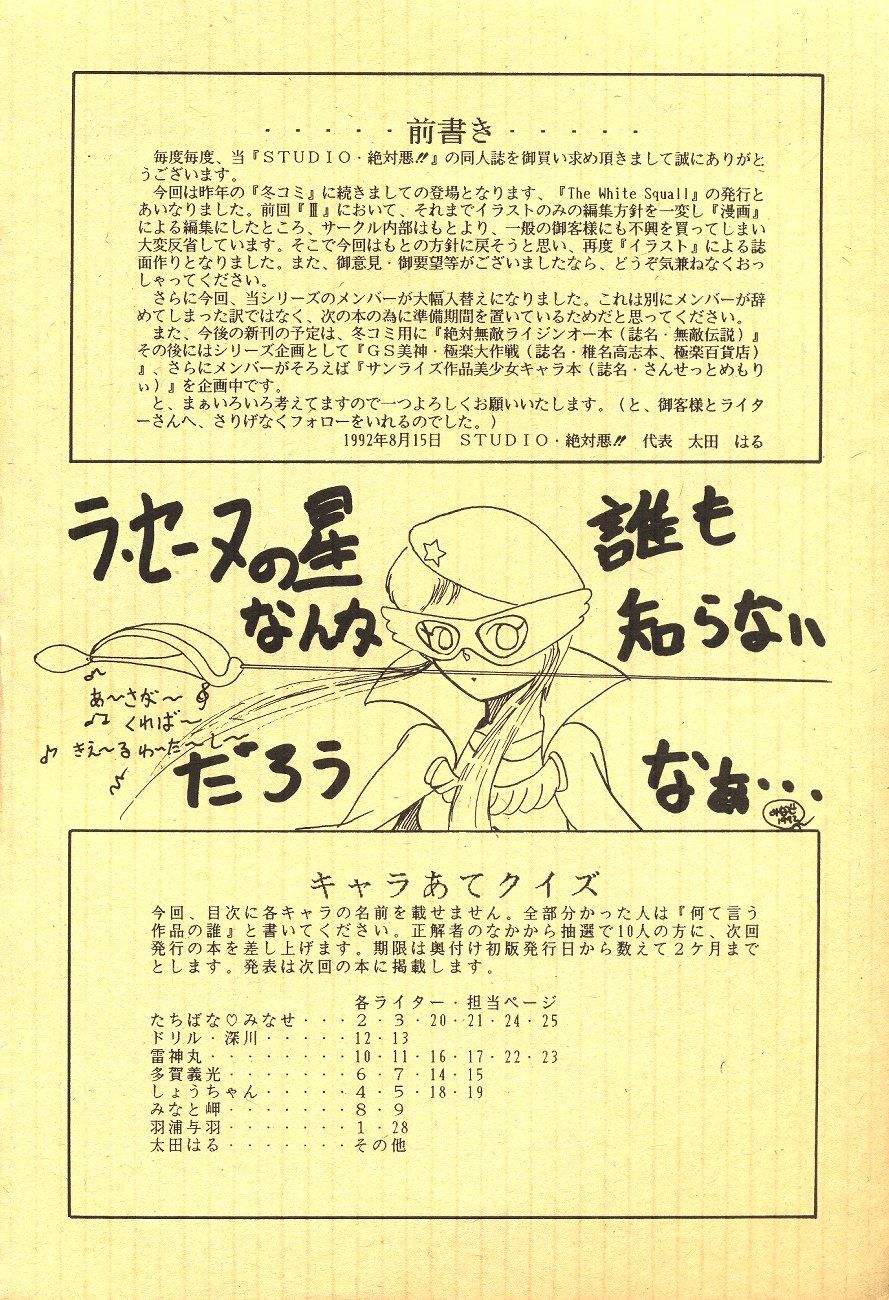 ・・・・・前書き・・・・・
毎度毎度、当『ＳＴＵＤＩＯ・絶対悪!!』の同人誌を御買い求め頂きまして誠にありがと
うございます。
今回は昨年の『冬コミ』に続きましての登場となります、『The White Squall』の発行と
あいなりました。前回『Ⅲ』において、それまでイラストのみの編集方針を一変し『漫画』
による編集にしたところ、サークル内部はもとより、一般の御客様にも不興を買ってしまい
大変反省しています。そこで今回はもとの方針に戻そうと思い、再度『イラスト』による誌
面作りとなりました。また、御意見・御要望等がございましたなら、どうぞ気兼ねなくおっ
しゃってください。
さらに今回、当シリーズのメンバーが大幅入替えになりました。これは別にメンバーが辞
めてしまった訳ではなく、次の本の為に準備期間を置いているためだと思ってください。
また、今後の新刊の予定は、冬コミ用に『絶対無敵ライジンオー本（誌名・無敵伝説）』
その後にはシリーズ企画として『ＧＳ美神・極楽大作戦（誌名・椎名高志本、極楽百貨店）
』、さらにメンバーがそろえば『サンライズ作品美少女キャラ本（誌名・さんせっとめもり
ぃ）』を企画中です。
と、まぁいろいろ考えてますので一つよろしくお願いいたします。（と、御客様とライタ
ーさんへ、さりげなくフォローをいれるのでした。）
1992年8月15日　ＳＴＵＤＩＯ・絶対悪!!　代表　太田　はる
ラ・セーヌの星
なんか
誰も
知らない
だろう
なぁ…
♪あ〜さが〜
♪くれば〜
♪きえ〜るわ〜た〜し〜
キャラあてクイズ
今回、目次に各キャラの名前を載せません。全部分かった人は『何て言う
作品の誰』と書いてください。正解者のなかから抽選で10人の方に、次回
発行の本を差し上げます。期限は奥付け初版発行日から数えて２ケ月まで
とします。発表は次回の本に掲載します。
各ライター・担当ページ
たちばな♡みなせ・・・２・３・20・21・24・25
ドリル・深川・・・・・12・13
雷神丸・・・・・・・・10・11・16・17・22・23
多賀義光・・・・・・・６・７・14・15
しょうちゃん・・・・・４・５・18・19
みなと岬・・・・・・・８・９
羽浦与羽・・・・・・・１・28
太田はる・・・・・・・その他